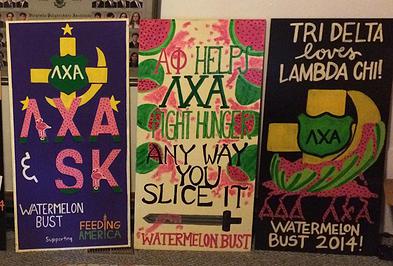 ΛΧΑ
ΛΧΑ
&
ΣΚ
WATERMELON
BUST
Supporting
FEEDING
AMERICA
ΑΦ HELPS
ΛΧΑ
FIGHT HUNGER
ANY WAY
YOU
SLICE IT
WATERMELON BUST
TRI DELTA
loves
LAMBDA CHI!
ΛΧΑ
ΔΔΔ ΛΧΑ
WATERMELON
BUST 2014!